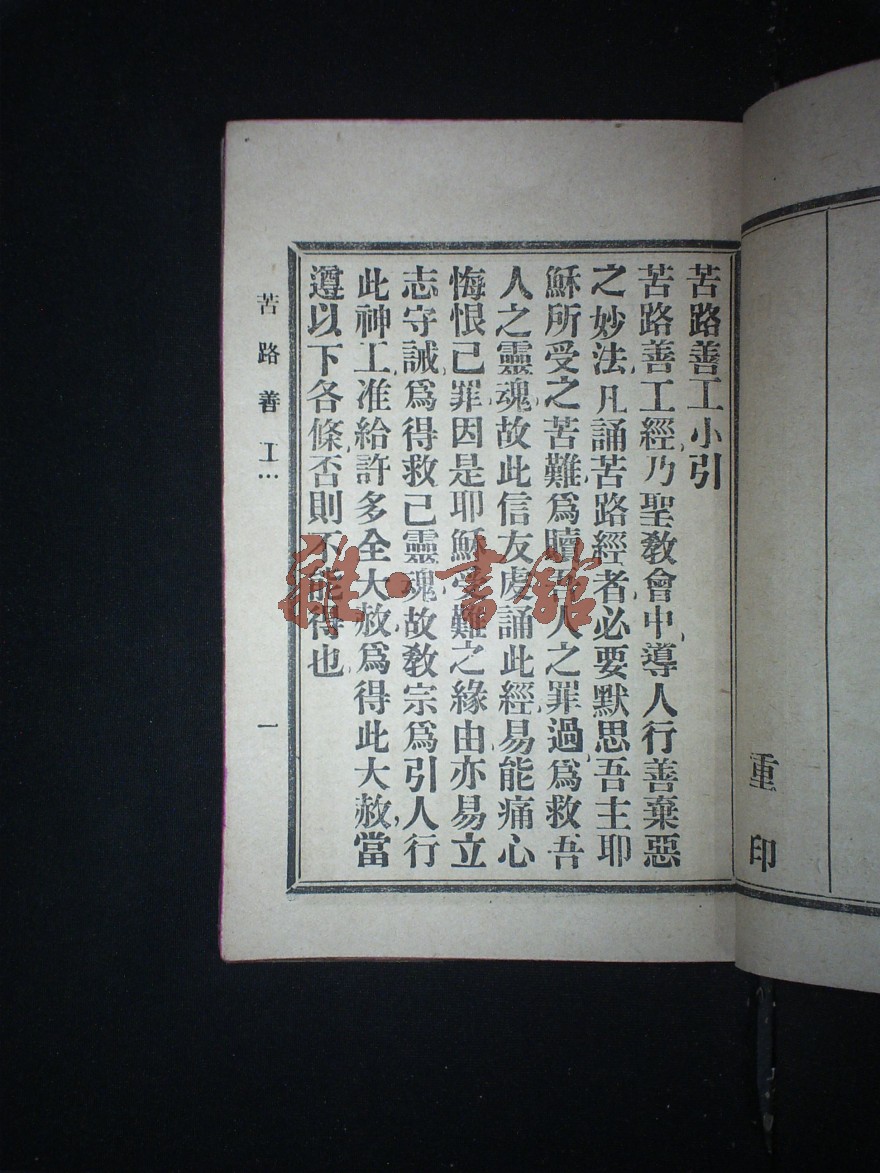 重印
苦路善工小引
苦路善工經乃聖教會中導人行善棄惡
之妙法凡誦苦路經者必要默思吾主耶
穌所受之苦難爲贖吾人之罪過爲救吾
人之靈魂故此信友虔誦此經易能痛心
悔恨己罪因是耶穌受難之緣由亦易立
志守誡爲得救己靈魂故教宗爲引人行
此神工准給許多全大赦爲得此大赦當
遵以下各條否則不能得也
苦路善工…
一
雜·書館